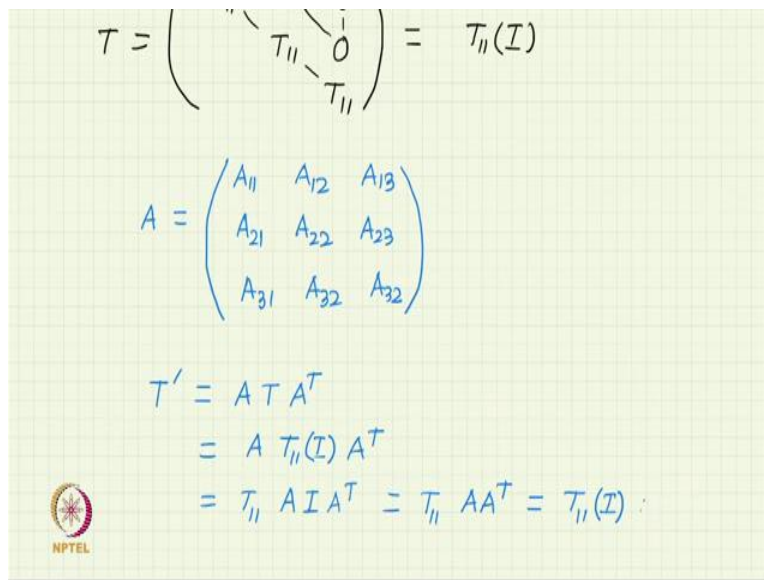 T = ( T₁₁ 0 T₁₁ ) = T₁₁(I)
A = ( A₁₁ A₁₂ A₁₃
A₂₁ A₂₂ A₂₃
A₃₁ A₃₂ A₃₂ )
T′ = A T Aᵀ
= A T₁₁(I) Aᵀ
= T₁₁ A I Aᵀ = T₁₁ AAᵀ = T₁₁(I) :
NPTEL